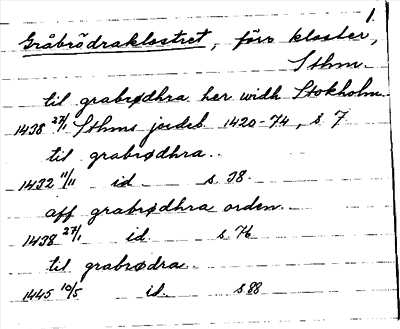 1.
Gråbrödraklostret, förr kloster,
Sthm.
til grabrødhra her widh Stokholm.
1438 27/1 Sthms jordeb 1420-74, s 7
til grabrødhra..
1432 11/11 id s 38.
aff grabrødhra orden.
1438 27/1 id. s 76
til grabrødra.
1445 10/5 id. s 88